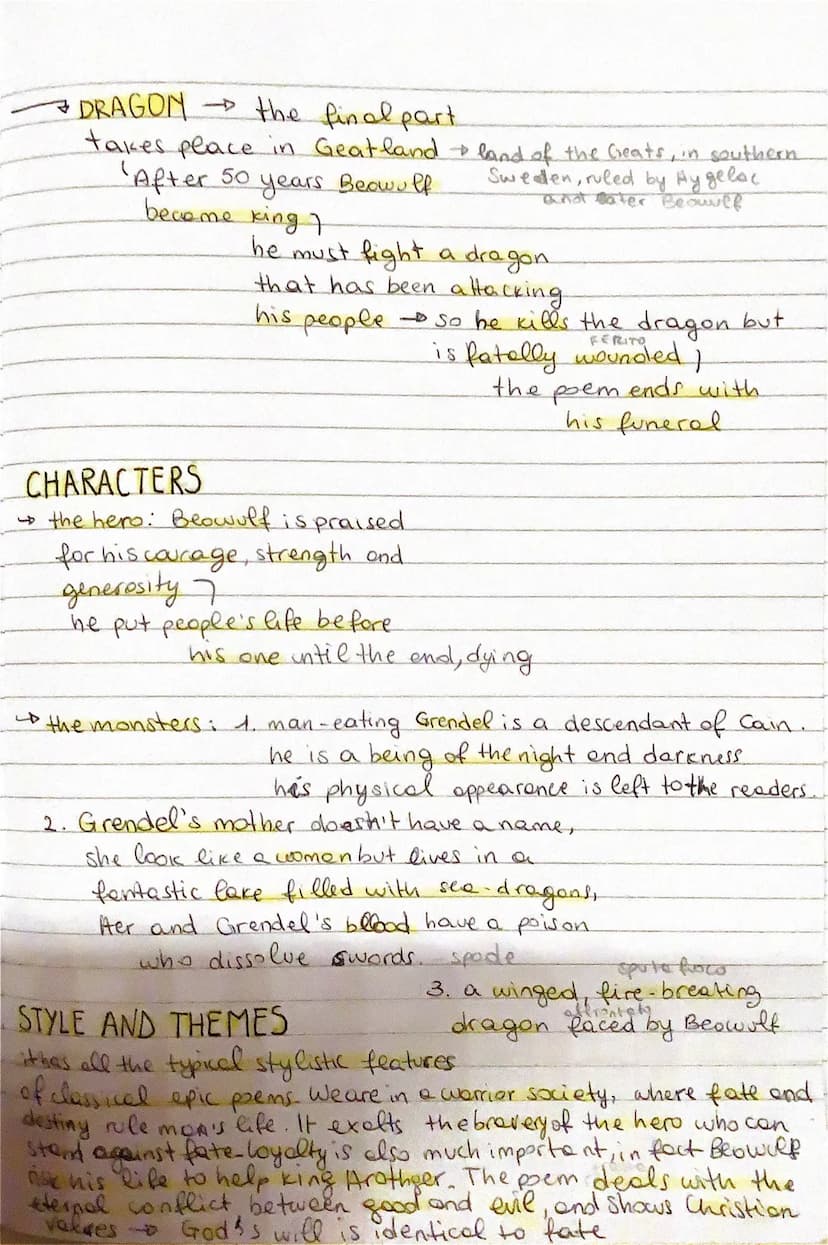 → DRAGON → the final part
takes place in Geatland → land of the Geats, in southern
Sweden, ruled by Hygelac
and later Beowulf
After 50 years Beowulf
become king
he must fight a dragon
that has been attacking
his people → so he kills the dragon but
FERITO
is fatally wounded
the poem ends with
his funeral
CHARACTERS
→ the hero: Beowulf is praised
for his courage, strength and
generosity
he put people's life before
his one until the end, dying
→ the monsters: 1. man-eating Grendel is a descendant of Cain.
he is a being of the night and darkness
his physical appearance is left to the readers.
2. Grendel's mother doesn't have a name,
she look like a woman but lives in a
fantastic lake filled with sea-dragons,
Her and Grendel's blood have a poison
who dissolve swords. spade
sputa fuoco
3. a winged, fire-breating
affrontato
dragon faced by Beowulf
STYLE AND THEMES
it has all the typical stylistic features
of classical epic poems. We are in a warrior society, where fate and
destiny rule man's life. It exalts the bravery of the hero who can
stand against fate. Loyalty is also much important, in fact Beowulf
risk his life to help king Hrothger. The poem deals with the
eternal conflict between good and evil, and shows Christian
values → God's will is identical to fate